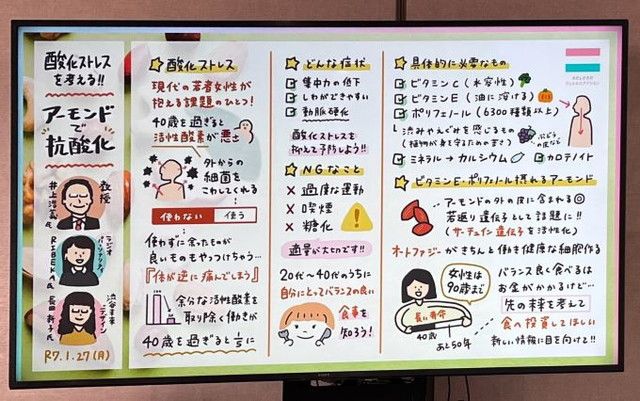 酸化ストレス
を考える!!
アーモンド
で
抗酸化
教授
井上浩義氏
ラジオパーソナリティ
RIBEKA氏
渋谷未来デザイン
長田新子氏
R7.1.27(月)
酸化ストレス
現代の若者女性が
抱える課題のひとつ!
40歳を過ぎると
活性酸素が悪さ
外からの
細菌を
こわしてくれる
使わない 使う
使わずに余ったものが
良いものもやっつけちゃう…
『体が逆に痛んでしまう』
余分な活性酸素を
取り除く働きが
40歳を過ぎると
どんな症状
集中力の低下
しわができやすい
動脈硬化
酸化ストレスを
抑えて予防しよう!!
NGなこと
過度な運動
喫煙
糖化
適量が大切です!!
20代〜40代のうちに
自分にとってバランスの良い
食事を
知ろう!
具体的に必要なもの
ビタミンC(水容性)
ビタミンE(油に溶ける)
ポリフェノール(6300種類以上)
渋みやえぐみを感じるもの
(植物が身を守るためのもの)
ぶどうの皮など
ミネラル→カルシウム
カロテノイド
ビタミンE・ポリフェノール摂れるアーモンド
アーモンドの外の皮に含まれる◎
若返り遺伝子として話題に!!
(サーチュイン遺伝子を活性化)
オートファジーがきちんと働き健康な細胞作る
女性は
90歳まで
長い寿命
40歳
あと50年
バランス良く食べるは
お金がかかるけど…
先の未来を考えて
食へ投資してほしい
新しい情報に目を向けて!!